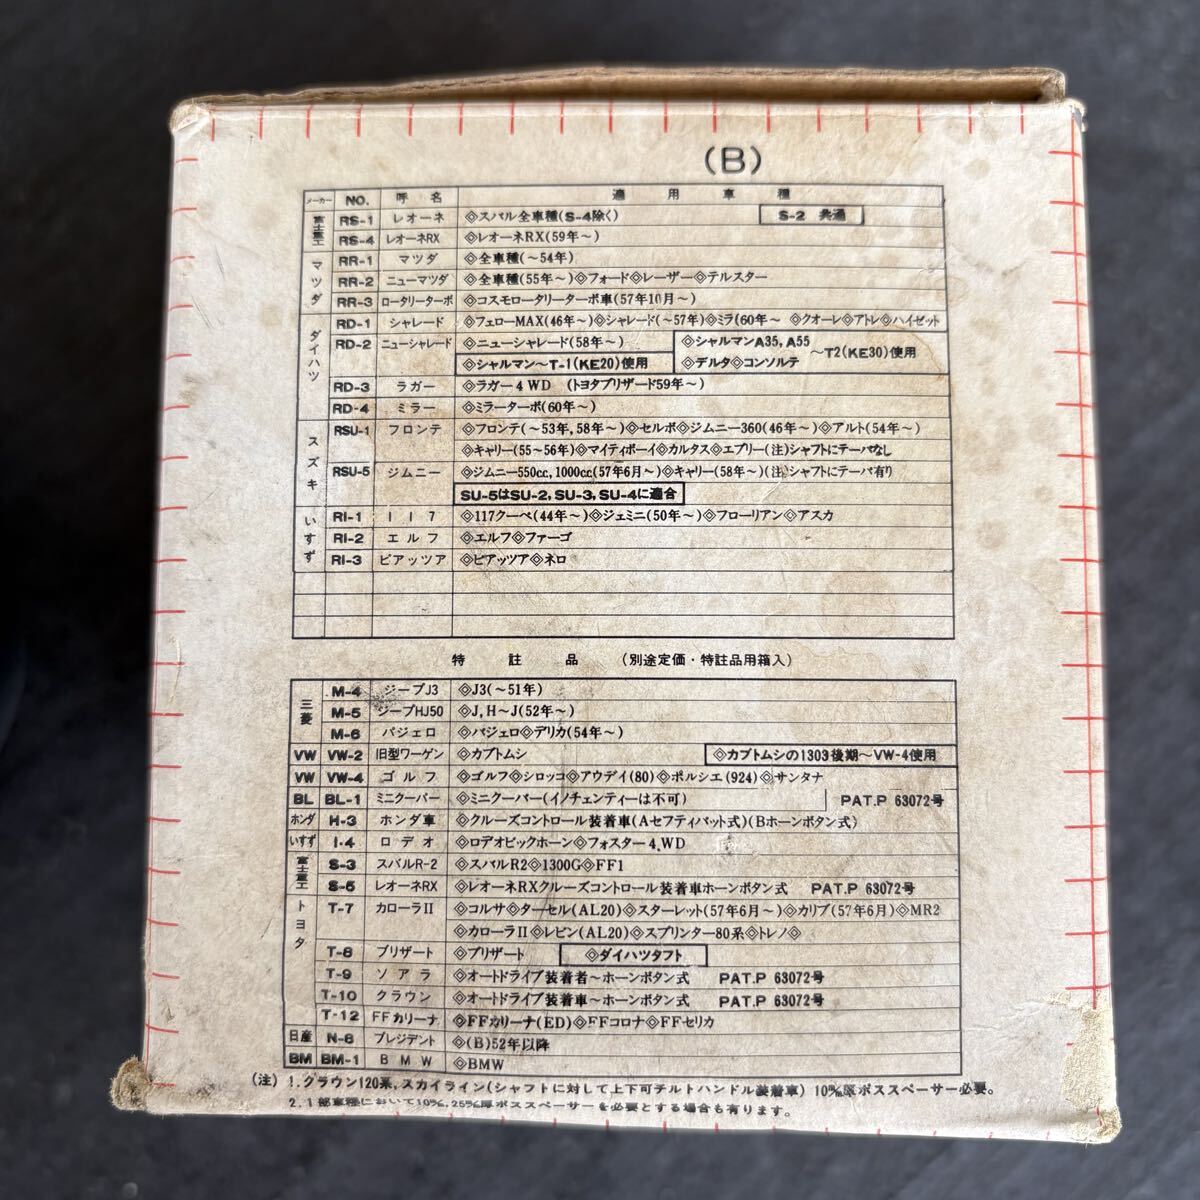 (B)
メーカー NO. 呼名 適用車種
富士重工 RS-1 レオーネ ◇スバル全車種(S-4除く) S-2 共通
RS-4 レオーネRX ◇レオーネRX(59年～)
マツダ RR-1 マツダ ◇全車種(～54年)
RR-2 ニューマツダ ◇全車種(55年～)◇フォード◇レーザー◇テルスター
RR-3 ロータリーターボ ◇コスモロータリーターボ車(57年10月～)
ダイハツ RD-1 シャレード ◇フェローMAX(46年～)◇シャレード(～57年)◇ミラ(60年～ ◇クオーレ◇アトレ◇ハイゼット
RD-2 ニューシャレード ◇ニューシャレード(58年～) ◇シャルマンA35, A55
◇シャルマン～T-1(KE20)使用 ◇デルタ◇コンソルテ ～T2(KE30)使用
RD-3 ラガー ◇ラガー4WD (トヨタブリザード59年～)
RD-4 ミラー ◇ミラーターボ(60年～)
スズキ RSU-1 フロンテ ◇フロンテ(～53年, 58年～)◇セルボ◇ジムニー360(46年～)◇アルト(54年～)
◇キャリー(55～56年)◇マイティボーイ◇カルタス◇エブリー(注)シャフトにテーパなし
RSU-5 ジムニー ◇ジムニー550cc, 1000cc(57年6月～)◇キャリー(58年～)(注)シャフトにテーパ有り
SU-5はSU-2, SU-3, SU-4に適合
いすず RI-1 117 ◇117クーペ(44年～)◇ジェミニ(50年～)◇フローリアン◇アスカ
RI-2 エルフ ◇エルフ◇ファーゴ
RI-3 ピアッツア ◇ピアッツア◇ネロ
特註品 (別途定価・特註品用箱入)
三菱 M-4 ジープJ3 ◇J3(～51年)
M-5 ジープHJ50 ◇J, H～J(52年～)
M-6 パジェロ ◇パジェロ◇デリカ(54年～)
VW VW-2 旧型ワーゲン ◇カブトムシ ◇カブトムシの1303後期～VW-4使用
VW VW-4 ゴルフ ◇ゴルフ◇シロッコ◇アウディ(80)◇ポルシエ(924)◇サンタナ
BL BL-1 ミニクーパー ◇ミニクーパー(イノチェンティーは不可) PAT.P 63072号
ホンダ H-3 ホンダ車 ◇クルーズコントロール装着車(Aセフティパット式)(Bホーンボタン式)
いすず I-4 ロデオ ◇ロデオビックホーン◇フォスター4.WD
富士重工 S-3 スバルR-2 ◇スバルR2◇1300G◇FF1
S-5 レオーネRX ◇レオーネRXクルーズコントロール装着車ホーンボタン式 PAT.P 63072号
トヨタ T-7 カローラII ◇コルサ◇ターセル(AL20)◇スターレット(57年6月～)◇カリブ(57年6月)◇MR2
◇カローラII◇レビン(AL20)◇スプリンター80系◇トレノ◇
T-8 ブリザート ◇ブリザート ◇ダイハツタフト
T-9 ソアラ ◇オートドライブ装着者～ホーンボタン式 PAT.P 63072号
T-10 クラウン ◇オートドライブ装着車～ホーンボタン式 PAT.P 63072号
T-12 FFカリーナ ◇FFカリーナ(ED)◇FFコロナ◇FFセリカ
日産 N-6 プレジデント ◇(B)52年以降
BM BM-1 BMW ◇BMW
(注) 1. クラウン120系, スカイライン(シャフトに対して上下可チルトハンドル装着車) 10㎜厚ボススペーサー必要。
2. 1部車種において10㎜, 25㎜厚ボススペーサーを必要とする場合も有ります。